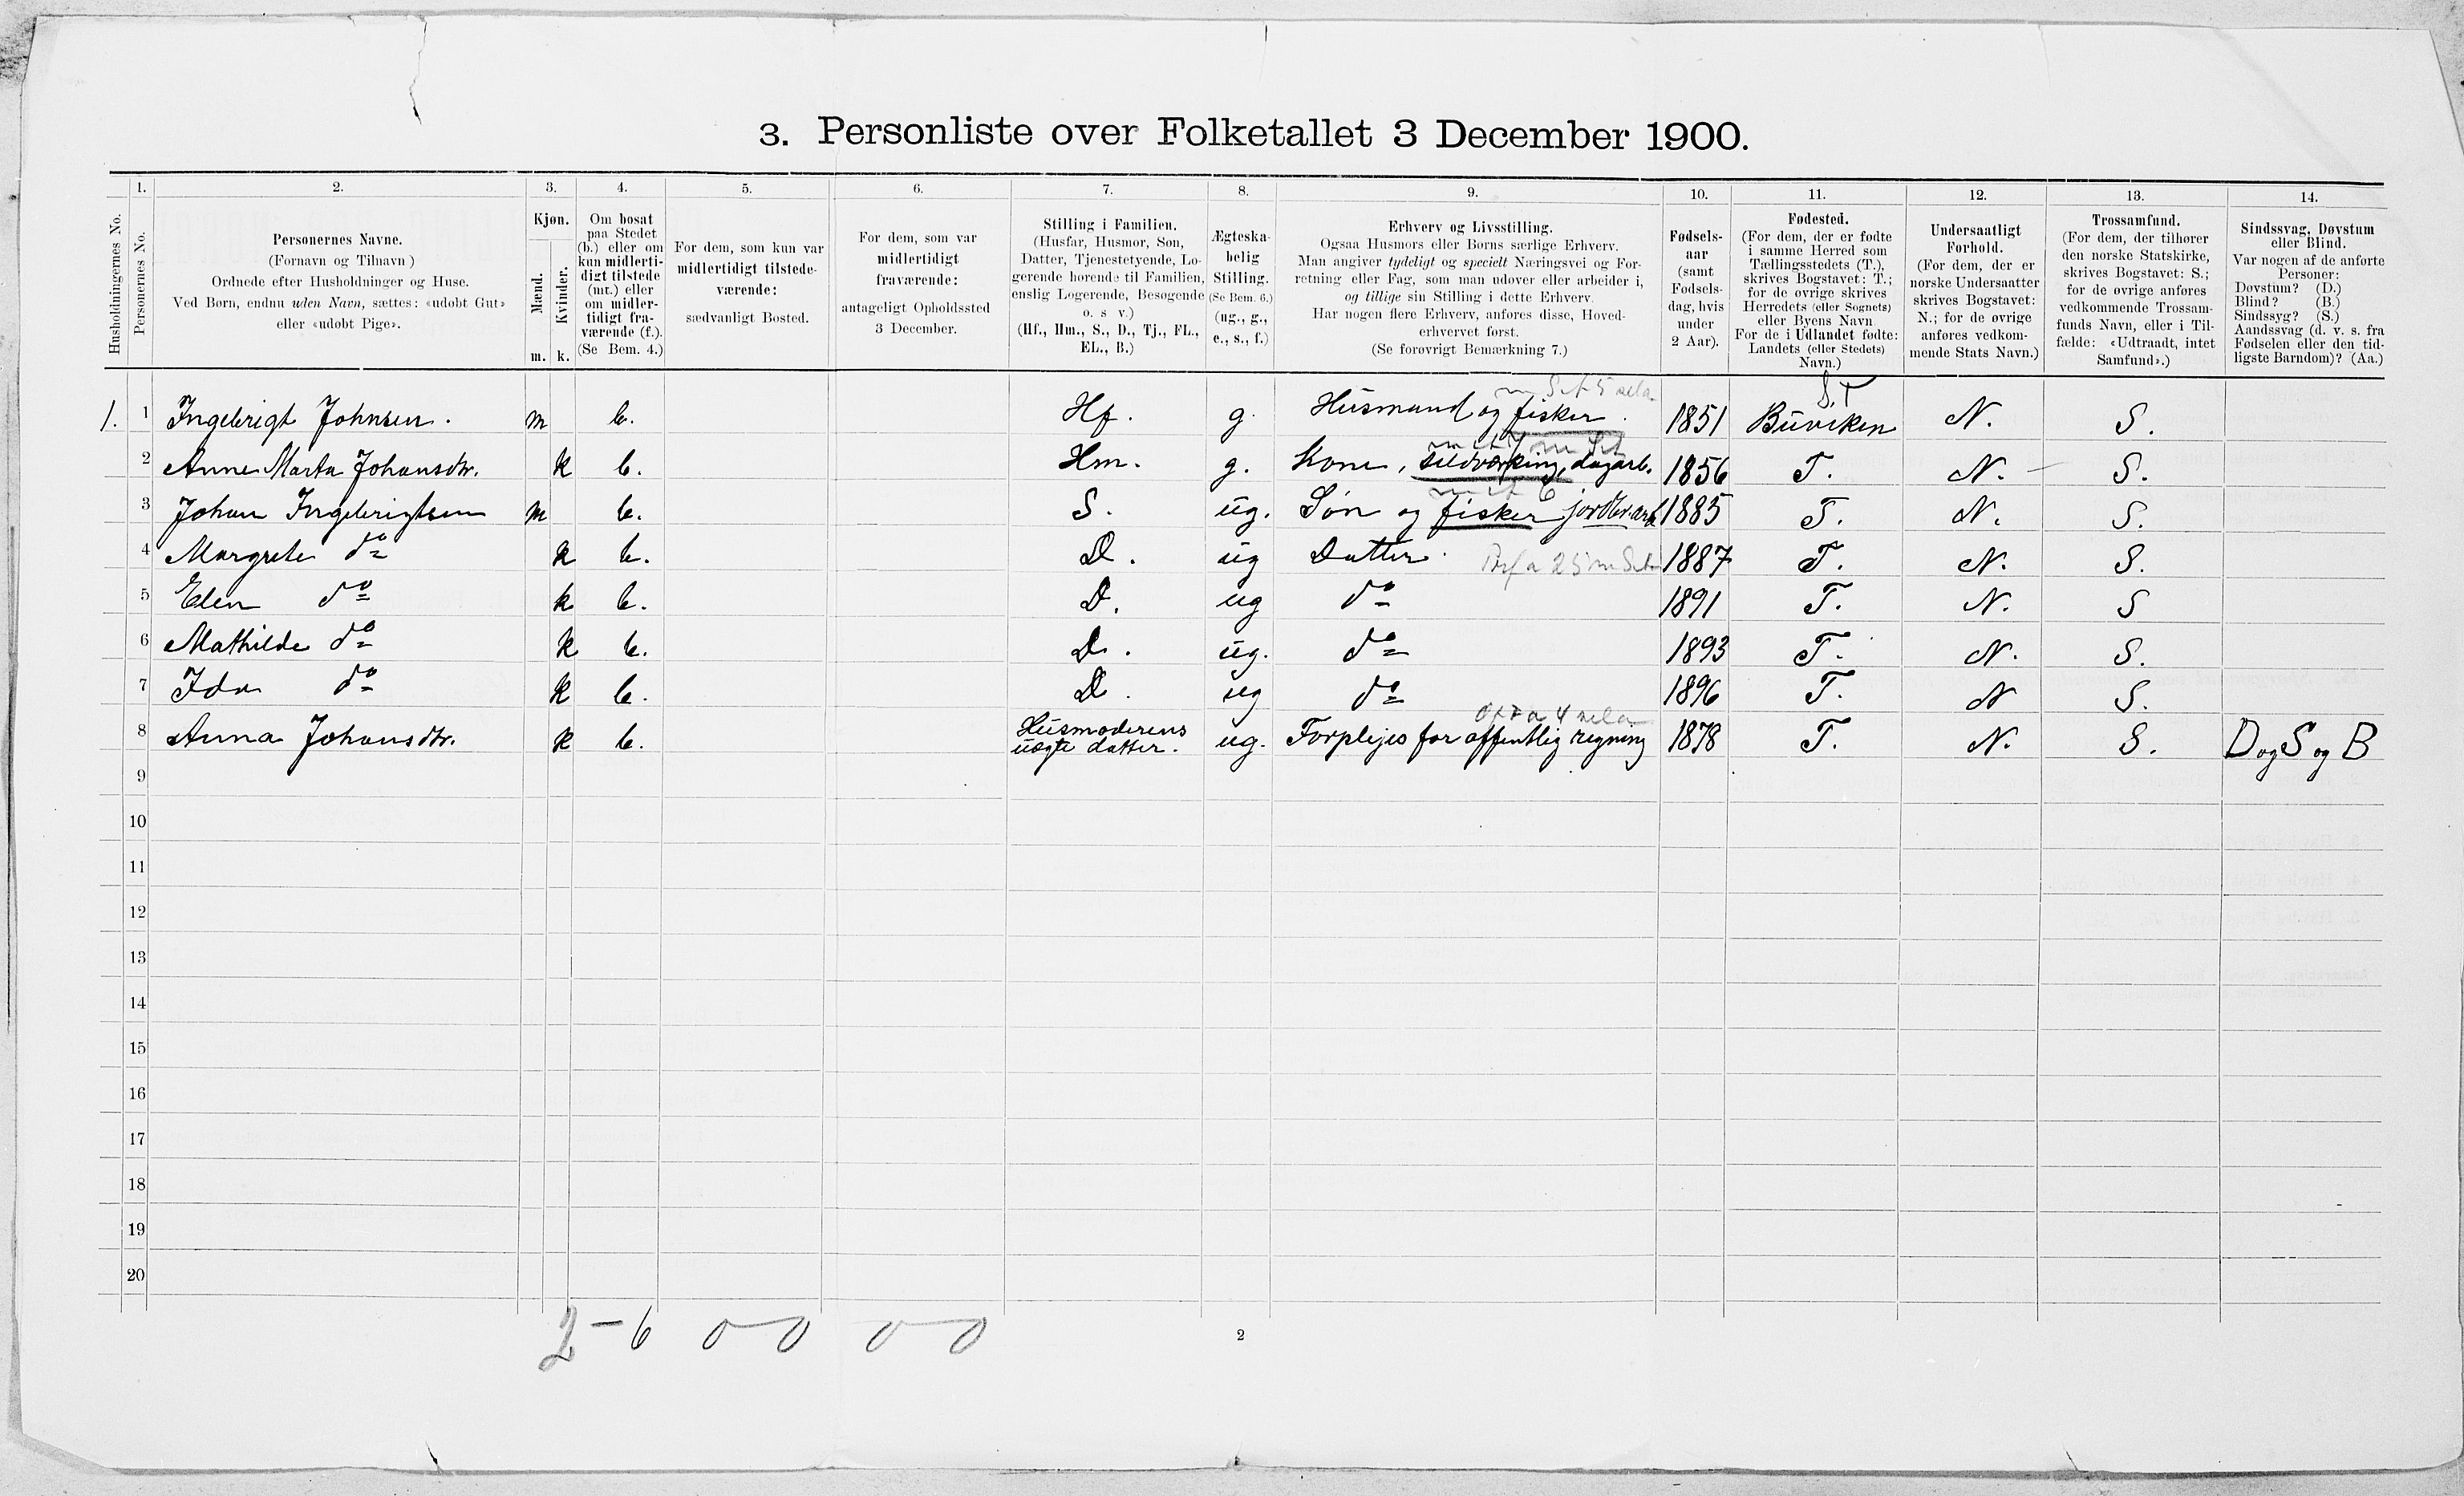 3. Personliste over Folketallet 3 December 1900.
Husholdningernes No.
1.
Personernes No.
2.
Personernes Navne.
(Fornavn og Tilnavn)
Ordnede efter Husholdninger og Huse.
Ved Børn, endnu uden Navn, sættes: «udøbt Gut»
eller «udøbt Pige».
3.
Kjøn.
Mænd.
Kvinder.
m. k.
4.
Om bosat
paa Stedet
(b.) eller om
kun midlerti-
digt tilstede
(mt.) eller
om midler-
tidigt fra-
værende (f.).
(Se Bem. 4.)
5.
For dem, som kun var
midlertidigt tilstede-
værende:
sædvanligt Bosted.
6.
For dem, som var
midlertidigt
fraværende:
antageligt Opholdssted
3 December.
7.
Stilling i Familien.
(Husfar, Husmor, Søn,
Datter, Tjenestetyende, Lo-
gerende hørende til Familien,
enslig Logerende, Besøgende
o. s v.)
(Hf., Hm., S., D., Tj., FL.,
EL., B.)
8.
Ægteska-
belig
Stilling.
(Se Bem. 6.)
(ug., g.,
e., s., f.)
9.
Erhverv og Livsstilling.
Ogsaa Husmors eller Børns særlige Erhverv.
Man angiver tydeligt og specielt Næringsvei og For-
retning eller Fag, som man udøver eller arbeider i,
og tillige sin Stilling i dette Erhverv.
Har nogen flere Erhverv, anføres disse, Hoved-
erhvervet først.
(Se forøvrigt Bemærkning 7.)
10.
Fødsels-
aar
(samt
Fødsels-
dag, hvis
under
2 Aar).
11.
Fødested.
(For dem, der er fødte
i samme Herred som
Tællingsstedets (T.),
skrives Bogstavet: T.;
for de øvrige skrives
Herredets (eller Sognets)
eller Byens Navn
For de i Udlandet fødte:
Landets (eller Stedets)
Navn.)
12.
Undersaatligt
Forhold.
(For dem, der er
norske Undersaatter
skrives Bogstavet:
N.; for de øvrige
anføres vedkom-
mende Stats Navn.)
13.
Trossamfund.
(For dem, der tilhører
den norske Statskirke,
skrives Bogstavet: S.;
for de øvrige anføres
vedkommende Trossam-
funds Navn, eller i Til-
fælde: «Udtraadt, intet
Samfund».)
14.
Sindssvag, Døvstum
eller Blind.
Var nogen af de anførte
Personer:
Døvstum? (D.)
Blind? (B.)
Sindssyg? (S.)
Aandssvag (d. v. s. fra
Fødselen eller den tid-
ligste Barndom)? (Aa.)
S.T
1. 1 Ingebrigt Johnsen. m b. Hf. g. Husmand og fisker. 1851 Buviken N. S.
2 Anne Marta Johansdtr. k b. Hm. g. Kone, sildvirking, dagarb. 1856 T. N. S.
3 Johan Ingebrigtsen m b. S. ug. Søn og fisker jordbr.arb. 1885 T. N. S.
4 Margrete do k b. D. ug Datter. 1887 T. N. S.
5 Elen do k b. D. ug do 1891 T. N. S
6 Mathilde do k b. D. ug. do 1893 T. N. S.
7 Ida do k b. D. ug do 1896 T. N S.
8 Anna Johansdtr. k b. Husmoderens uægte datter. ug. Forplejes for offentlig regning 1878 T. N. S. D og S og B
9
10
11
12
13
14
15
16
17
18
19
20
2 - 6 0 0 0 0
2